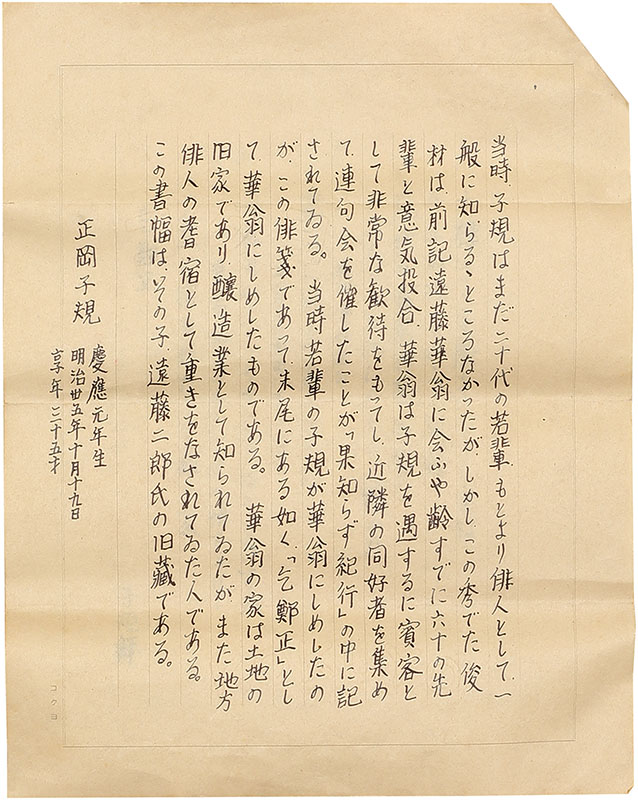 当時、子規はまだ二十代の若輩、もとより俳人として、一
般に知らるゝところなかったが、しかし、この秀でた俊
材は、前記遠藤華翁に会ふや齢すでに六十の先
輩と意気投合、華翁は子規を遇するに賓客と
して非常な歓待をもってし、近隣の同好者を集め
て、連句会を催したことが「果知らず紀行」の中に記
されてゐる。当時若輩の子規が華翁にしめしたの
が、この俳箋であって、末尾にある如く、「乞鄭正」とし
て、華翁にしめしたものである。華翁の家は土地の
旧家であり、醸造業として知られてゐたが、また地方
俳人の耆宿として重きをなされてゐた人である。
この書幅は、その子遠藤二郎氏の旧蔵である。
正岡子規
慶應元年生
明治卅五年十月十九日
享年三十五才
コクヨ